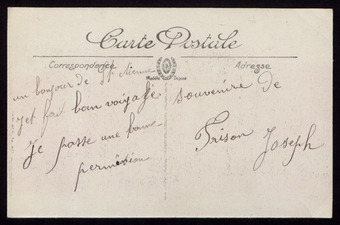 Carte Postale
Correspondance
Adresse
Modèle Déposé
un bonjour de St Etienne
jet fait bon voyage
je passe une bonne
permission
souvenire de
Frison Joseph